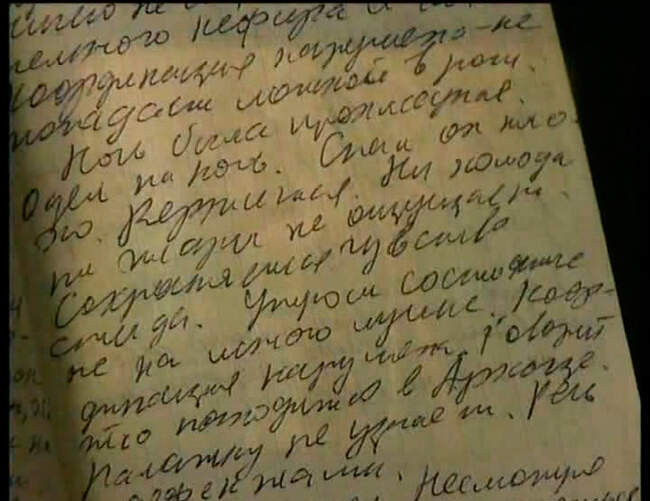 не
кефира и
Координация нарушена - не
попадает ложкой в рот.
Ночь была прохладная.
Одел на ночь. Спал он пло-
хо. Вертелся. Ни холода
ни жары не ощущает.
Сохраняется чувство
стыда. Утром состояние
не на много лучше. Коор-
динация нарушена. Говорит
что находится в
Палатку не узнает. Речь
Несмотря